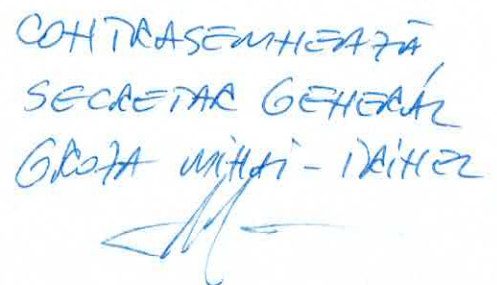 CONTRASEMNEAZĂ,
SECRETAR GENERAL
GROZA MIHAI-